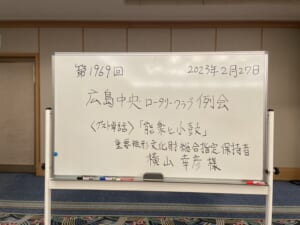 第1969回 2023年2月27日
広島中央ロータリークラブ例会
〈ゲスト卓話〉「能楽と小鼓」
重要無形文化財総合指定保持者
横山幸彦様